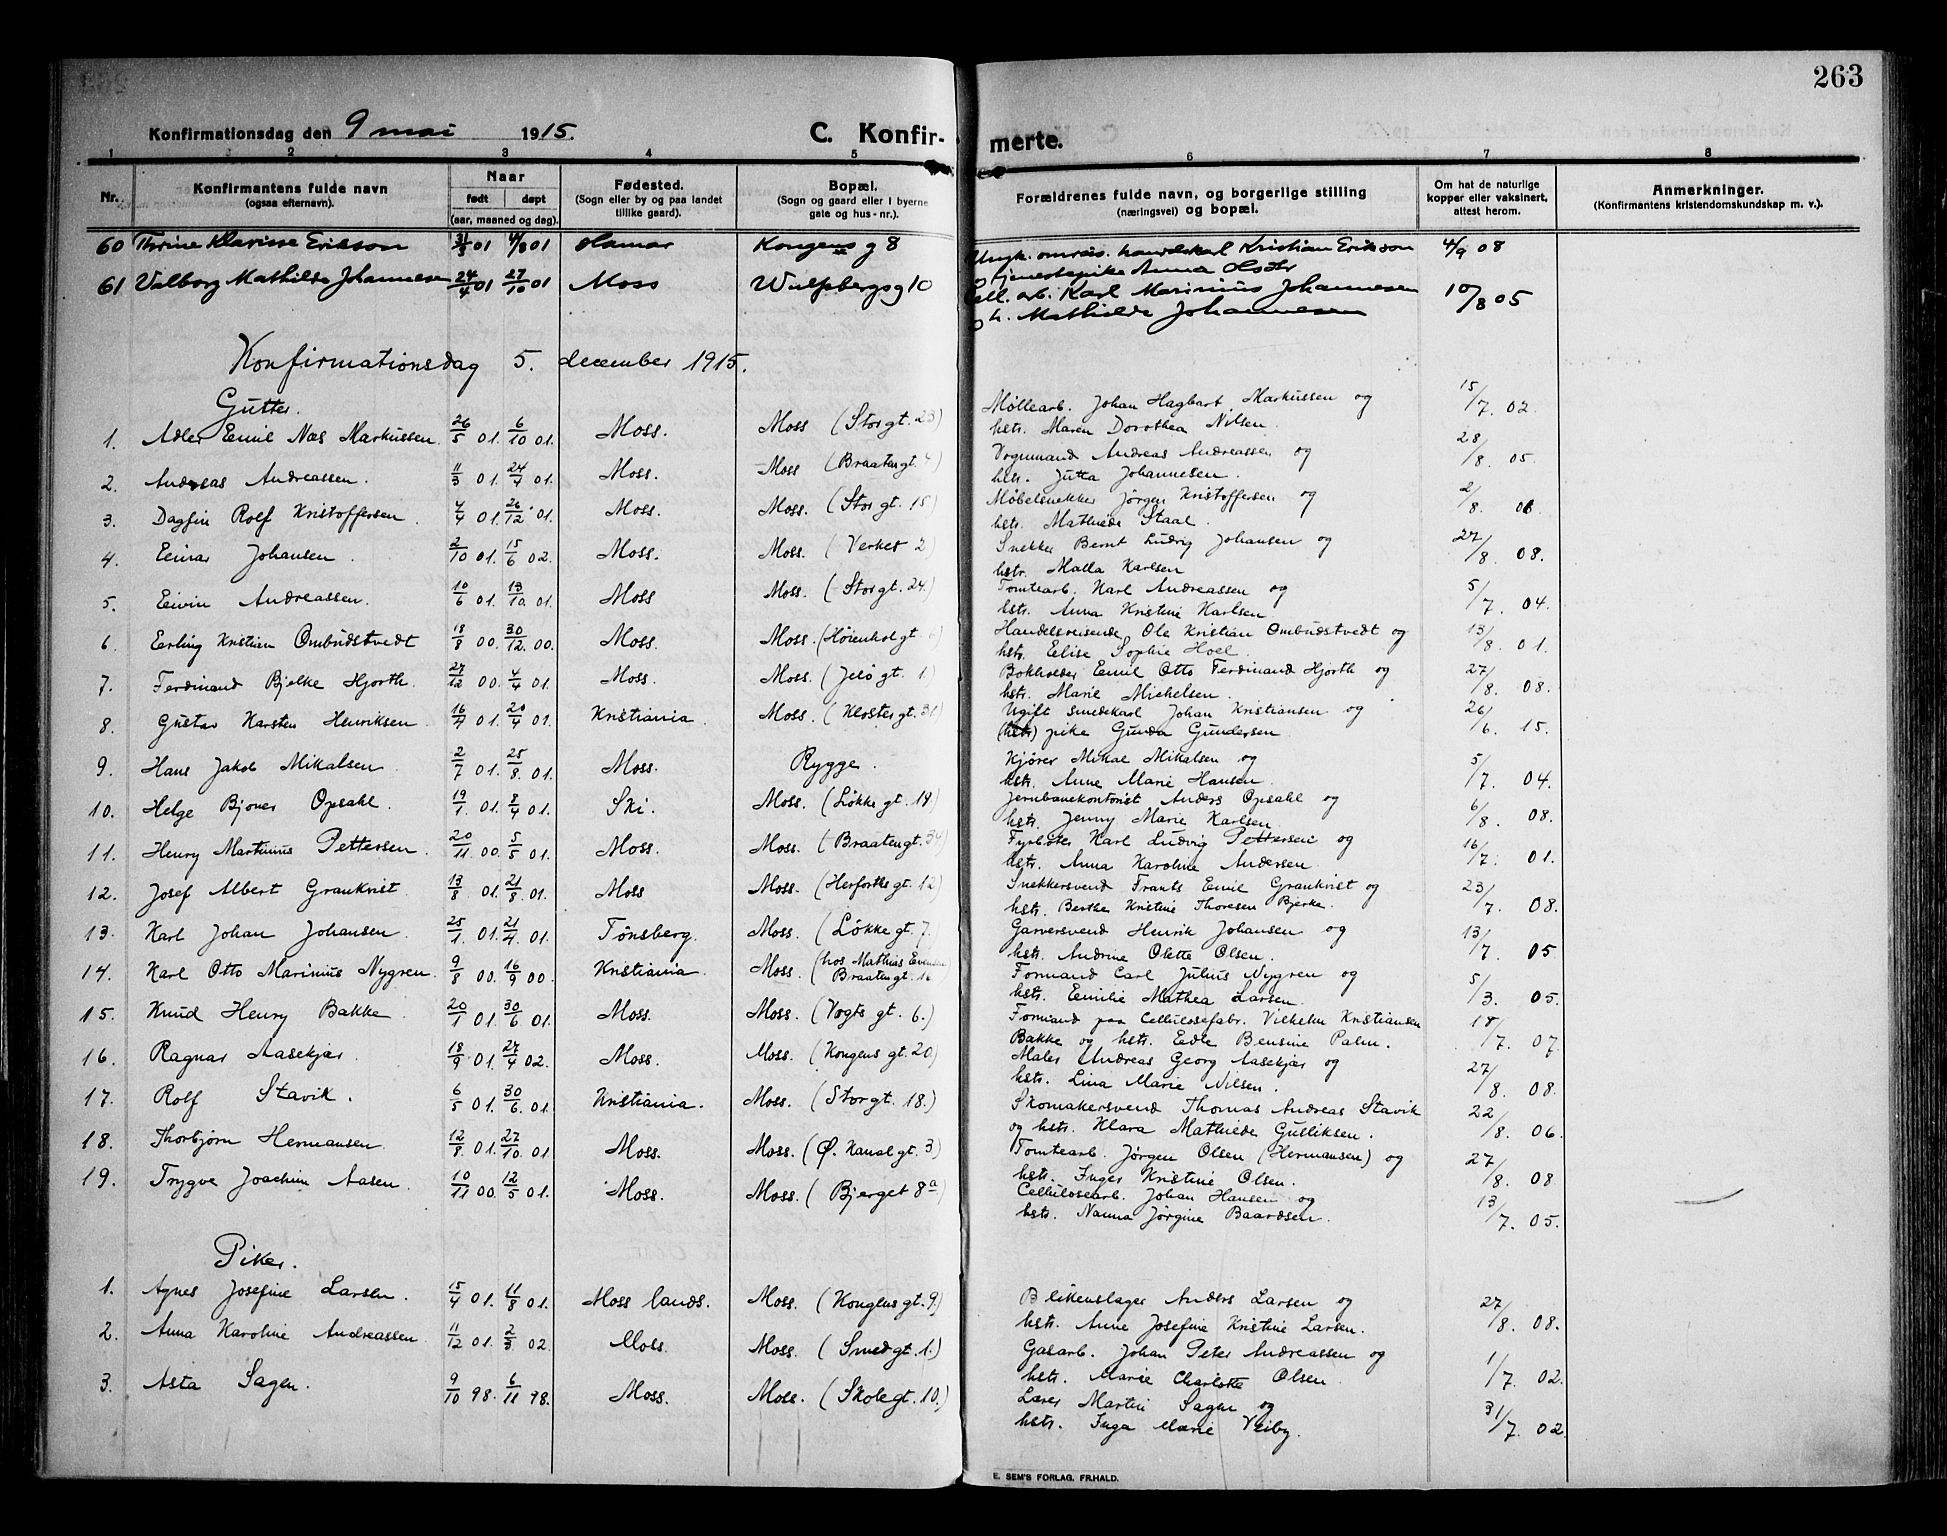 263
Konfirmationsdag den 9 mai 1915. C. Konfir- merte.
1 2 3 4 5 6 7 8
Nr. Konfirmantens fulde navn (ogsaa efternavn). Naar født døpt (aar, maaned og dag). Fødested. (Sogn eller by og paa landet tillike gaard). Bopæl. (Sogn og gaard eller i byerne gate og hus-nr.). Forældrenes fulde navn, og borgerlige stilling (næringsvei) og bopæl. Om hat de naturlige kopper eller vaksinert, attest herom. Anmerkninger. (Konfirmantens kristendomskundskap m. v.).
60 Thrine Klarisse Erikson 31/3 01 4/8 01 Hamar Kongens g 8 Ungk. handelskal Kristian Erikson 4/9 08
og tjenestepike Anna
61 Valborg Mathilde Johannesen 24/4 01 27/10 01 Moss Wulfsbergs g 10 Cell. arb. Karl Marinius Johannesen 10/8 05
og h. Mathilde Johannesen
Konfirmationsdag 5. december 1915.
Gutter.
1. Adler Emil Næs Markussen 26/5 01. 6/10 01. Moss. Moss (Stor gt. 23) Møllearb. Johan Hagbart Markussen og 15/7. 02.
hstr. Maren Dorothea Nilsen.
2. Andreas Andreassen. 11/3 01. 24/4 01. Moss. Moss (Braaten gt. 4) Vognmand Andreas Andreassen og 28/8. 05.
hstr. Jutta Johannesen.
3. Dagfin Rolf Kristoffersen. 4/4 01. 26/12 01. Moss. Moss. (Stor gt. 15) Møbelsnekker Jørgen Kristoffersen og 2/8. 06.
hstr. Mathilde Staal.
4. Einar Johansen. 2/10 01. 15/6 02. Moss. Moss. (Verket 2) Snekker Bernt Ludvig Johansen og 27/8. 08.
hstr. Malla Karlsen
5. Eivin Andreassen. 10/6 01. 13/10. 01. Moss Moss. (Stor gt. 24.) Tomtearb. Karl Andreassen og 5/7. 04.
hstr. Anna Kristine Karlsen
6. Erling Kristian Ombudstvedt 18/8 00. 30/12. 00. Moss. Moss. (Høienhol gt. 6) Handelsreisende Ole Kristian Ombudstvedt og 13/8. 01.
hstr. Elise Sophie Hoel.
7. Ferdinand Bjelke Hjorth. 27/12 00. 4/4 01. Moss. Moss. (Jelø gt. 1) Bokholder Emil Otto Ferdinand Hjorth og 27/8. 08.
hstr. Marie Michelsen.
8. Gustav Karsten Henriksen. 16/7 01. 20/4 01. Kristiania. Moss. (Kloster gt. 31) Ugift smedekarl Johan Kristiansen og 26/6. 15.
(hstr) pike Gunda Gundersen.
9. Hans Jakob Mikalsen. 2/7 01. 25/8. 01. Moss. Rygge. Kjører Mikal Mikalsen og 5/7. 04.
hstr. Anne Marie Hansen.
10. Helge Bjoner Opsahl. 19/1. 01. 8/4 01. Ski. Moss. (Løkke gt. 18) Jernbanekontorist Anders Opsahl og 6/8. 08.
hstr. Jenny Marie Karlsen.
11. Henry Martinius Pettersen. 20/11 00. 5/5 01. Moss. Moss. (Braaten gt. 34) Fyrbøter Karl Ludvig Pettersen og 16/7. 01.
hstr. Anna Karoline Andersen.
12. Josef Albert Grankvist 13/8 01. 21/8. 01. Moss Moss. (Herforths gt. 12) Snekkersvend Frants Emil Grankvist og 23/7. 08.
hstr. Berthe Kristine Thoresen Bjerke.
13. Karl Johan Johansen. 25/1. 01. 21/4 01. Tønsberg. Moss. (Løkke gt. 7. Garversvend Henrik Johansen og 13/7 05.
hstr. Andrine Olette Olsen.
14. Karl Otto Marinius Nygren. 9/8 00. 16/9 00. Kristiania. Moss. (hos Mathias Evensen Braaten gt. 16 Formand Carl Julius Nygren og 5/3. 05.
hstr. Emilie Mathea Larsen.
15. Knud Henry Bakke. 20/1 01. 30/6 01. Moss. Moss. (Vogts gt. 6.) Formand paa Cellulosefabr. Vilhelm Kristiansen 18/7. 07.
Bakke og hstr. Edle Bensine Palm.
16. Ragnar Aasekjær. 18/9 01. 27/4 02. Moss. Moss. (Kongens gt. 20) Maler Andreas Georg Aasekjær og 27/8. 08.
hstr. Lina Marie Nilsen.
17. Rolf Stavik. 6/5 01. 30/6. 01. Kristiania. Moss. (Stor gt. 18.) Skomakersvend Thomas Andreas Stavik 22/8. 06.
og hstr. Klara Mathilde Gulliksen.
18. Thorbjørn Hermansen. 12/8. 01. 27/10. 01. Moss. Moss. (Ø. Kanal gt. 3) Tomtearb. Jørgen Olsen (Hermansen) og 27/8. 08.
hstr. Inger Kristine Olsen.
19. Trygve Joachim Aasen. 10/11 00. 12/5 01. Moss. Moss. (Bjerget 8a) Cellulosearb. Johan Hansen og 13/7. 05.
hstr. Nanna Jørgine Baardsen.
Piker.
1. Agnes Josefine Larsen. 15/4 01. 11/8 01. Moss lands. Moss. (Kongens gt. 9.) Blikenslager Anders Larsen og 27/8. 08.
hstr. Anne Josefine Kristine Larsen.
2. Anna Karoline Andreassen. 11/12 01. 2/3 02. Moss. Moss. (Smed gt. 1.) Gasarb. Johan Peter Andreassen og 1/7. 02.
hstr. Marie Charlotte Olsen.
3. Asta Sagen. 9/10 98. 6/11 98. Moss. Moss. (Skole gt. 10.) Lærer Martin Sagen og 31/7. 02.
hstr. Inga Marie Veiby.
E. SEM'S FORLAG. FR.HALD.